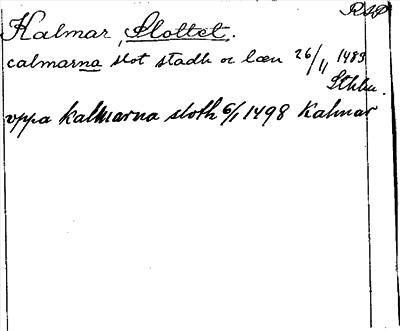 RAP
Kalmar, Slottet.
calmarna slot stadh oc læn 26/11 1483
Sthlm.
vppa kalmarna sloth 6/1 1498 Kalmar